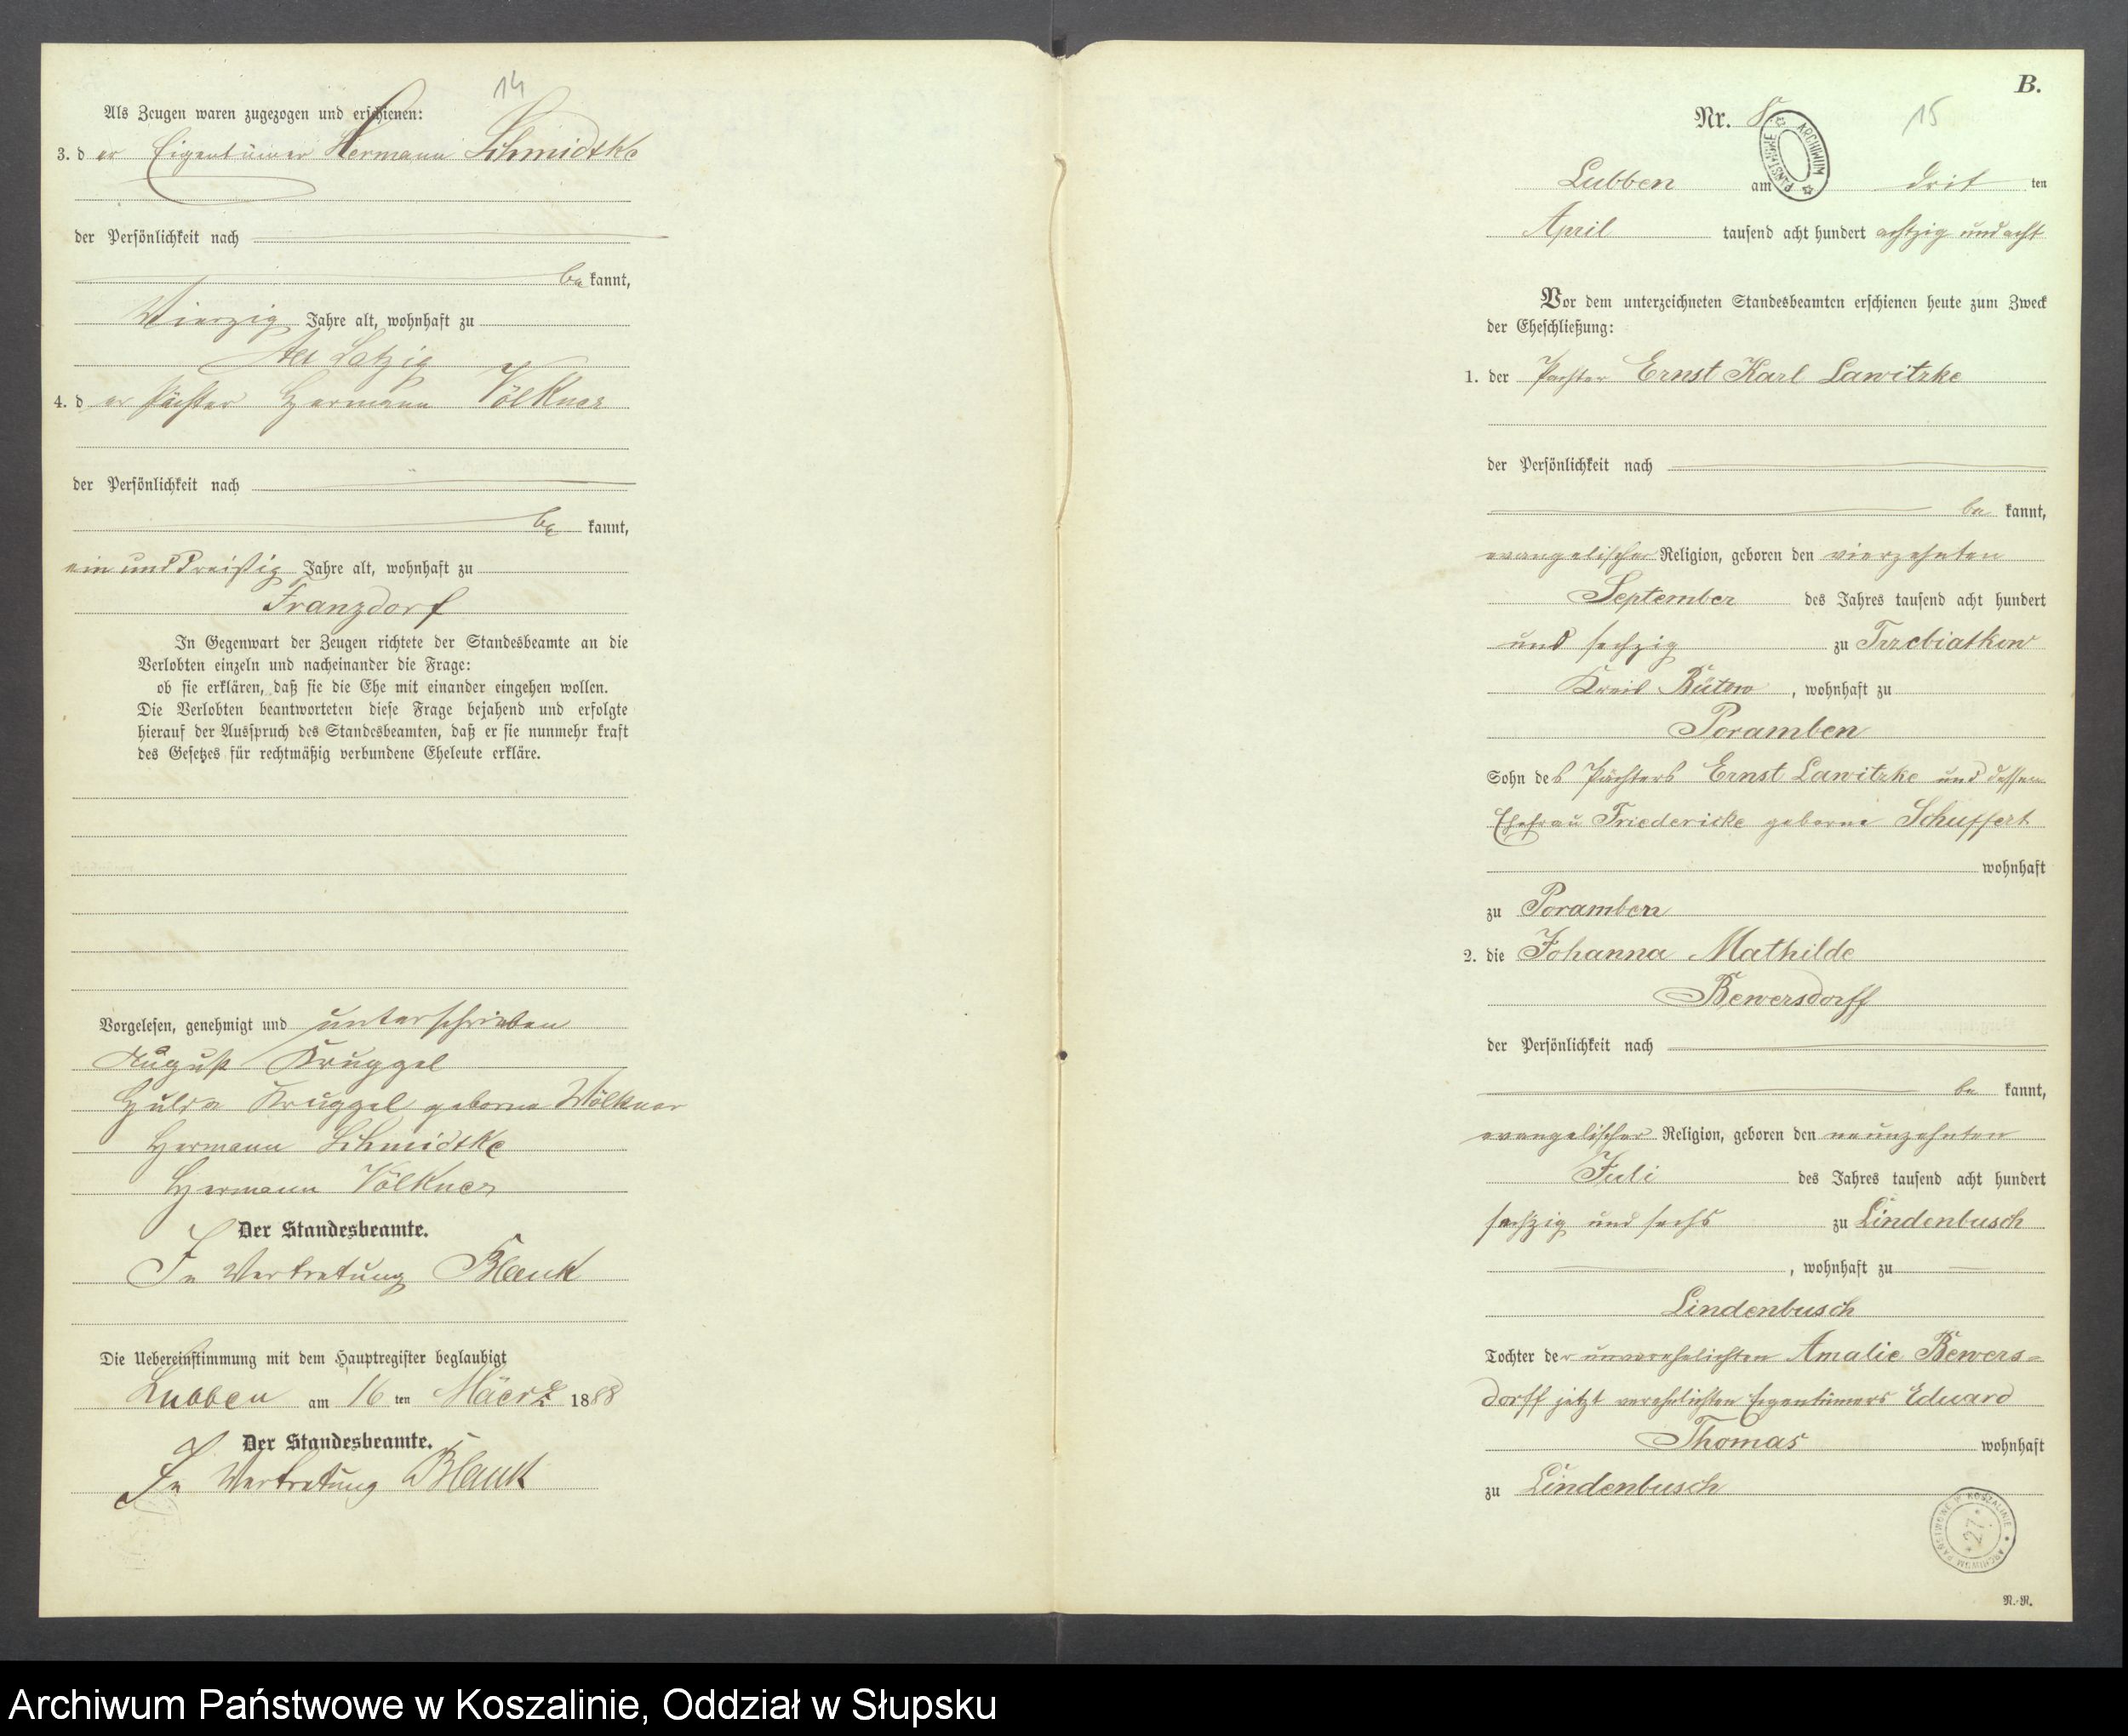 14
Als Zeugen waren zugezogen und erschienen:
3. d er Eigentümer Hermann Schmidtke
der Persönlichkeit nach
be kannt,
Vierzig Jahre alt, wohnhaft zu
Alt Latzig
4. d er Pächter Hermann Völkner
der Persönlichkeit nach
be kannt,
ein und dreißig Jahre alt, wohnhaft zu
Franzdorf
In Gegenwart der Zeugen richtete der Standesbeamte an die
Verlobten einzeln und nacheinander die Frage:
ob sie erklären, daß sie die Ehe mit einander eingehen wollen.
Die Verlobten beantworteten diese Frage bejahend und erfolgte
hierauf der Ausspruch des Standesbeamten, daß er sie nunmehr kraft
des Gesetzes für rechtmäßig verbundene Eheleute erkläre.
Vorgelesen, genehmigt und unterschrieben
August Kruggel
Hulda Kruggel geborne Völkner
Hermann Schmidtke
Hermann Völkner
Der Standesbeamte.
In Vertretung Blank
Die Uebereinstimmung mit dem Hauptregister beglaubigt
Lubben am 16 ten Maerz 1888
Der Standesbeamte.
In Vertretung Blank
B.
Nr. 8.
15
ARCHIWUM PAŃSTWOWE
Lubben am drit ten
April tausend acht hundert achtzig und acht
Vor dem unterzeichneten Standesbeamten erschienen heute zum Zweck
der Eheschließung:
1. der Pächter Ernst Karl Lawitzke
der Persönlichkeit nach
be kannt,
evangelischer Religion, geboren den vierzehnten
September des Jahres tausend acht hundert
und sechzig zu Trzebiatkow
Kreis Bütow, wohnhaft zu
Poramben
Sohn des Pächters Ernst Lawitzke und dessen
Ehefrau Friedericke geborne Schuffert
wohnhaft
zu Poramben
2. die Johanna Mathilde
Bewersdorff
der Persönlichkeit nach
be kannt,
evangelischer Religion, geboren den neunzehnten
Juli des Jahres tausend acht hundert
sechzig und sechs zu Lindenbusch
, wohnhaft zu
Lindenbusch
Tochter der unverehelichten Amalie Bewers=
dorff jetzt verehelichten Eigentümers Eduard
Thomas wohnhaft
zu Lindenbusch
ARCHIWUM PAŃSTWOWE W KOSZALINIE
27
N.-N.
Archiwum Państwowe w Koszalinie, Oddział w Słupsku